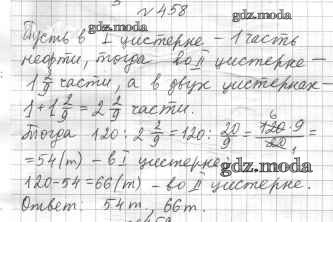 №458
gdz.moda
gdz.moda
Пусть в I цистерне – 1 часть
нефти, тогда во II цистерне –
1 2/9 части, а в двух цистернах –
1 + 1 2/9 = 2 2/9 части.
Тогда 120 : 2 2/9 = 120 : 20/9 = 120·9/20 =
= 54 (т) – в I цистерне;
gdz.moda
120 – 54 = 66 (т) – во II цистерне.
Ответ: 54 т., 66 т.